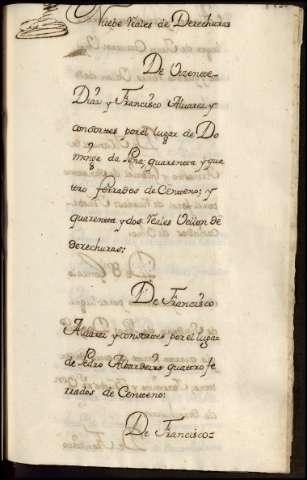 Nuebe reales de Derechuras
De Vizente
Diaz y Franzisco Alvarez y
consortes por el lugar de Do
de Pena, quarenta y qua
tero ferrados de Centeno; y
quarenta y dos reales Vellon de
derechuras:
De Franzisco
Alvarez y consortes por el lugar
de Pedro quatero fe
rrados de Centeno:
De Francisco=